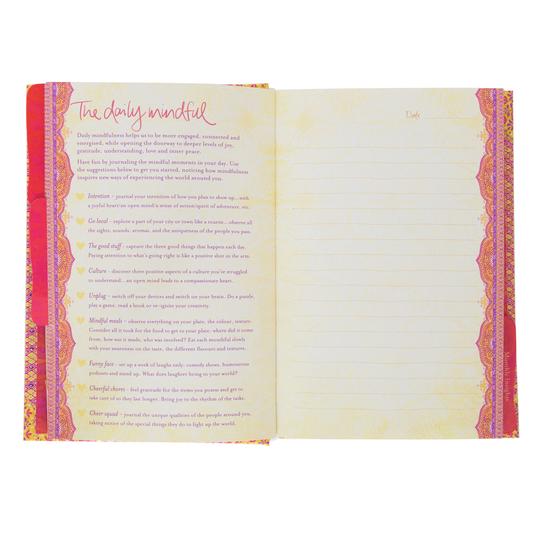 The daily mindful
Daily mindfulness helps us to be more engaged, connected and
energised, while opening the doorway to deeper levels of joy,
gratitude, understanding, love and inner peace.
Have fun by journaling the mindful moments in your day. Use
the suggestions below to get you started, noticing how mindfulness
inspires new ways of experiencing the world around you.
Intention – journal your intention of how you plan to show up... with
a joyful heart/an open mind/a sense of action/spirit of adventure, etc.
Go local – explore a part of your city or town like a tourist... observe all
the sights, sounds, aromas, and the uniqueness of the people you pass.
The good stuff – capture the three good things that happen each day.
Paying attention to what's going right is like a positive shot in the arm.
Culture – discover three positive aspects of a culture you've struggled
to understand... an open mind leads to a compassionate heart.
Unplug – switch off your devices and switch on your brain. Do a puzzle,
play a game, read a book or re-ignite your creativity.
Mindful meals – observe everything on your plate, the colour, texture.
Consider all it took for the food to get to your plate: where did it come
from, how was it made, who was involved? Eat each mouthful slowly
with your awareness on the taste, the different flavours and textures.
Funny face – set up a week of laughs only: comedy shows, humorous
podcasts and stand up. What does laughter bring to your world?
Cheerful chores – feel gratitude for the items you possess and get to
take care of so they last longer. Bring joy to the rhythm of the tasks.
Cheer squad – journal the unique qualities of the people around you,
taking notice of the special things they do to light up the world.
Date